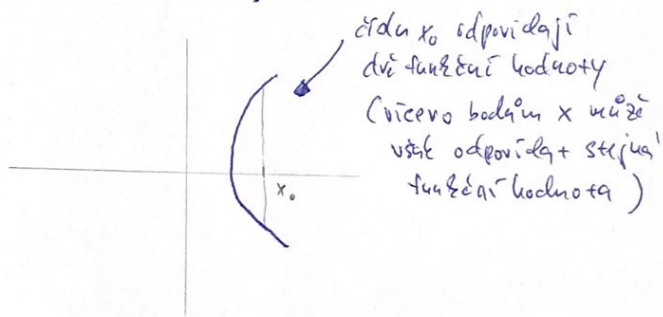 číslu x₀ odpovídají
dvě funkční hodnoty
(vícero bodům x může
však odpovídat stejná
funkční hodnota)
x₀